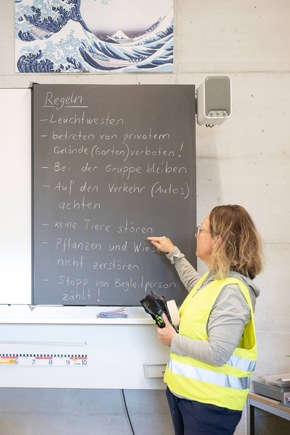 Regeln
- Leuchtwesten
- betreten von privatem
Gelände (Garten) verboten!
- Bei der Gruppe bleiben
- Auf den Verkehr (Autos)
achten
- keine Tiere stören
- Pflanzen und
nicht zerstören
- Stopp von Begleitperson
zählt!